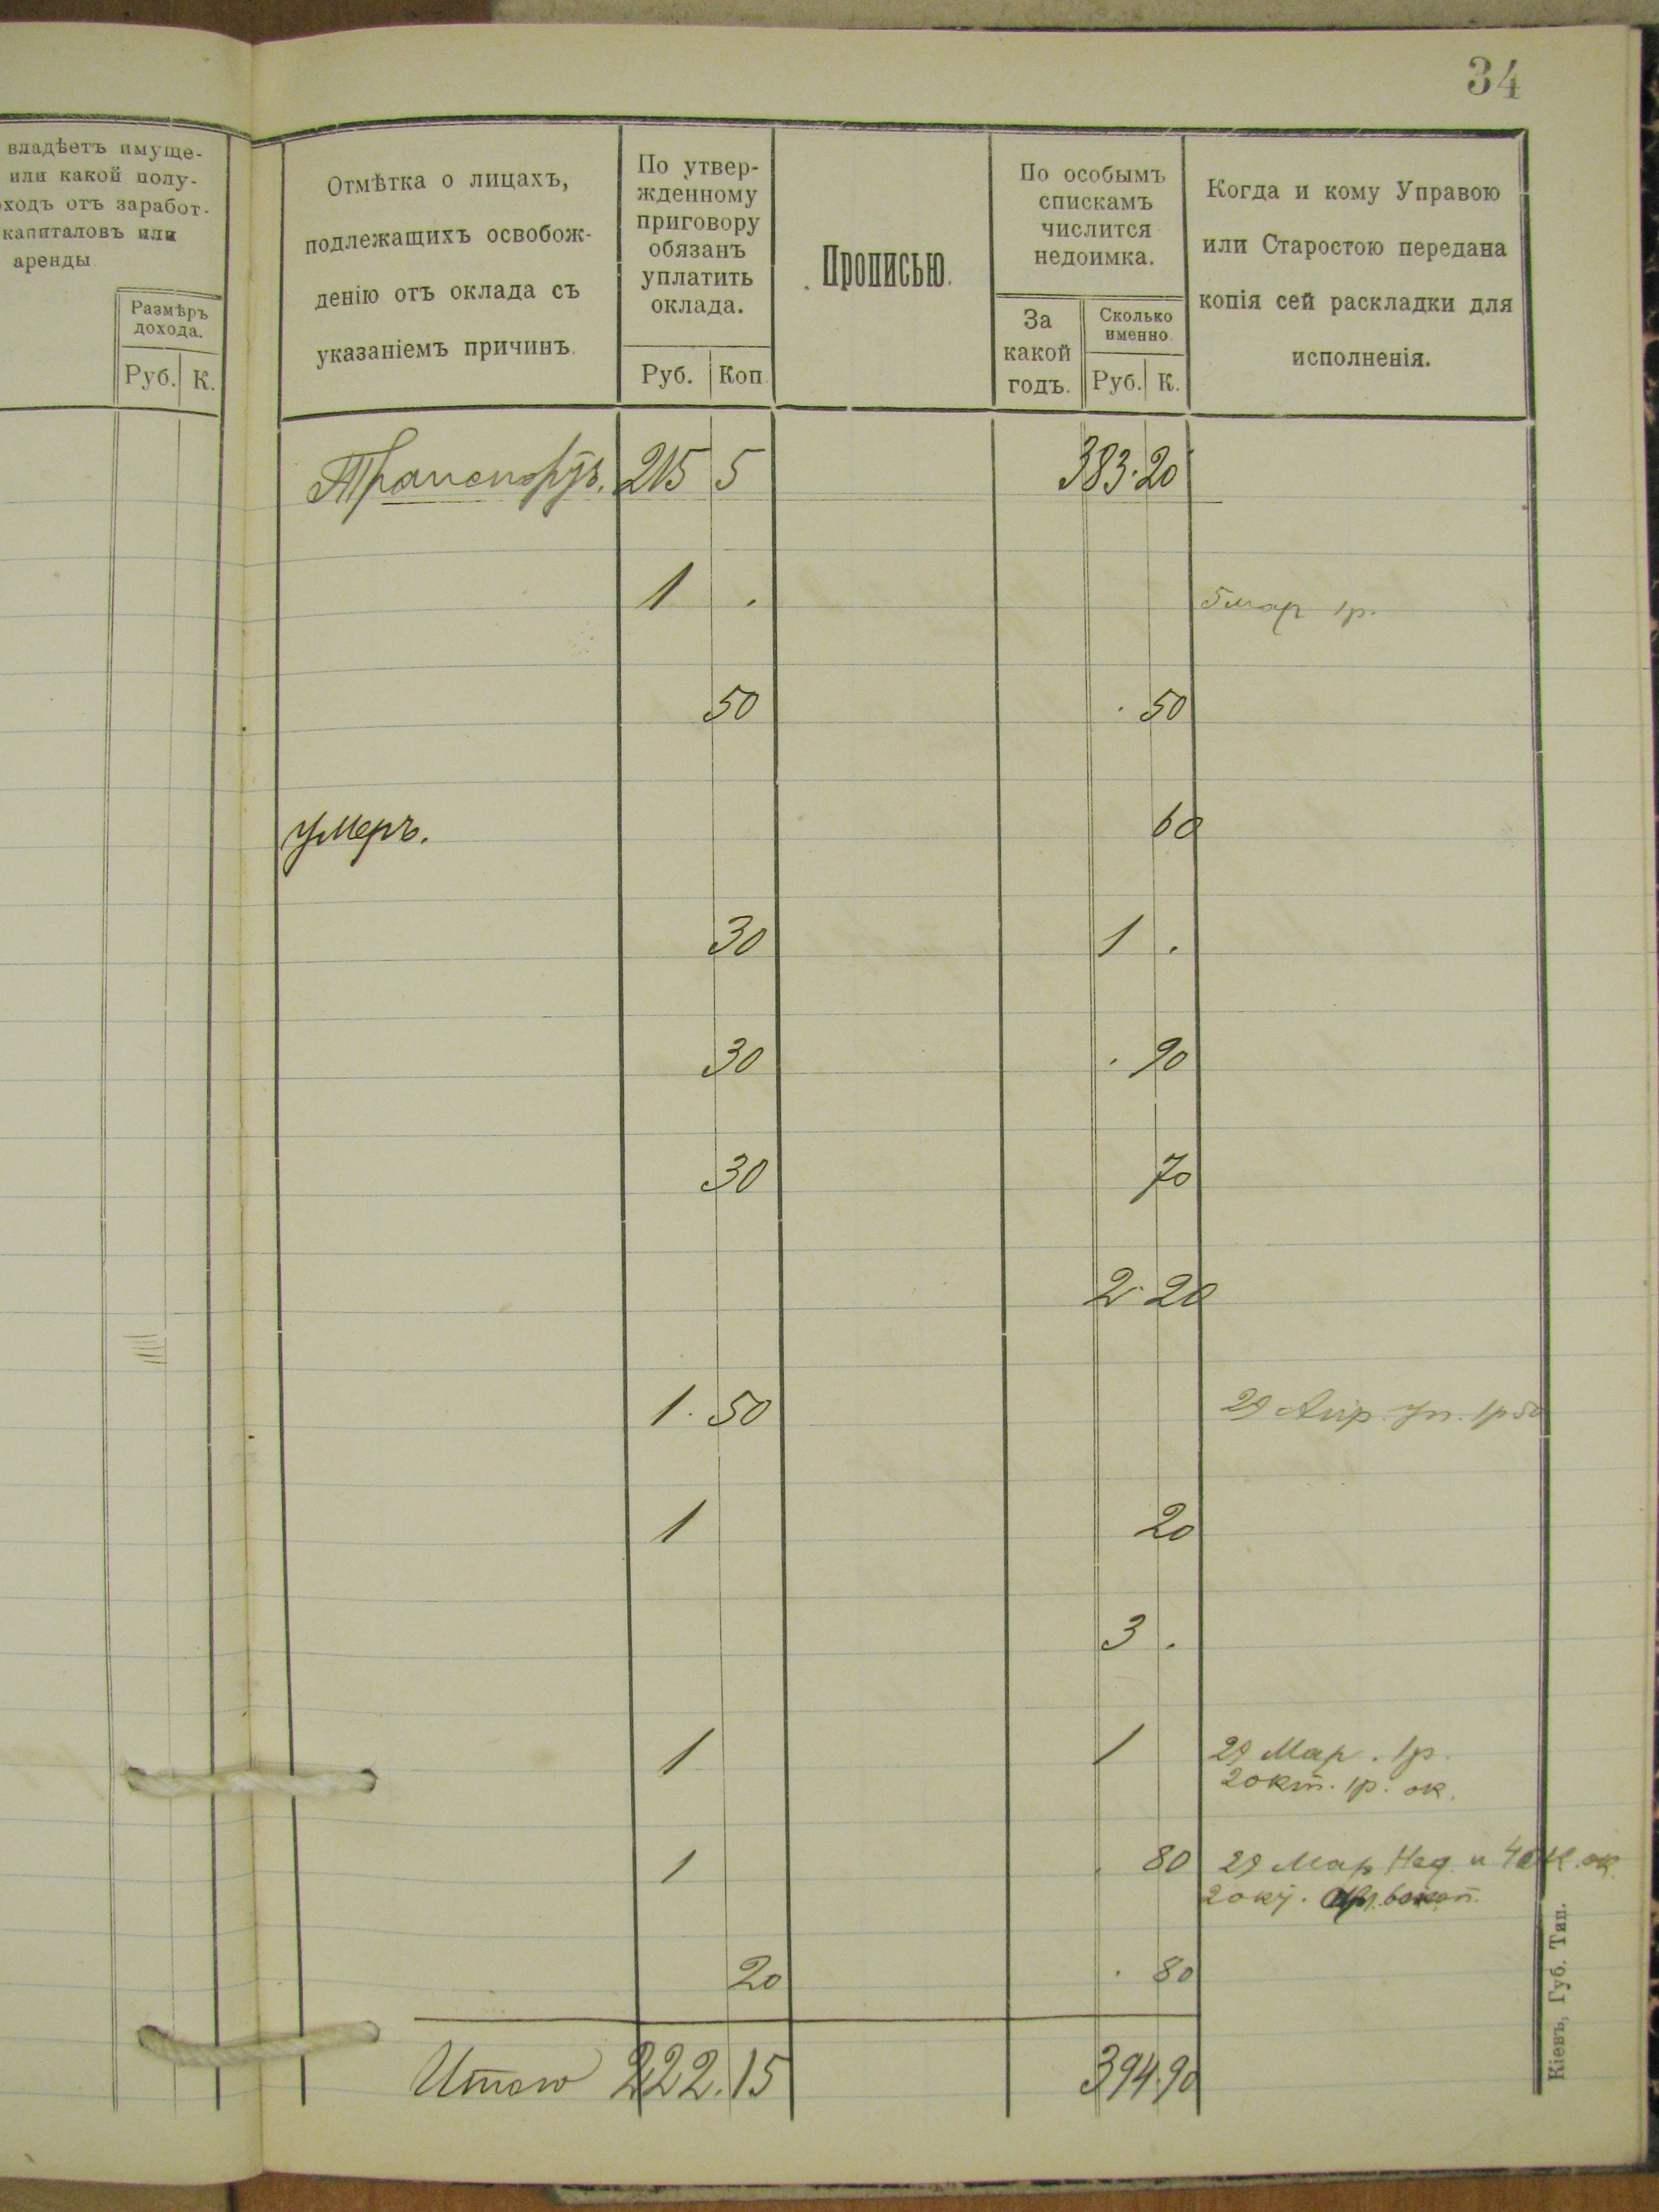 34
владѣетъ имуще-
или какой полу-
оходъ отъ заработ-
капиталовъ или
аренды
Размѣръ
дохода.
Руб. К.
Отмѣтка о лицахъ,
подлежащихъ освобож-
денію отъ оклада съ
указаніемъ причинъ.
По утвер-
жденному
приговору
обязанъ
уплатить
оклада.
Руб. Коп.
Прописью.
По особымъ
спискамъ
числится
недоимка.
За
какой
годъ.
Сколько
именно.
Руб. К.
Когда и кому Управою
или Старостою передана
копія сей раскладки для
исполненія.
Транспортъ. 215 5 383. 20
1 . 5 мар 1р.
50 . 50
умеръ. 60
30 1 .
30 . 90
30 70
2. 20
1. 50 29 Апр. уп. 1р 50
1 20
3 .
1 1 29 Мар. 1р.
2 окт. 1р. ок.
1 . 80 29 Мар Нед. и 40 к. ок.
2 окт. 60 коп.
20 . 80
Итого 222. 15 394. 90
Кіевъ, Губ. Тип.